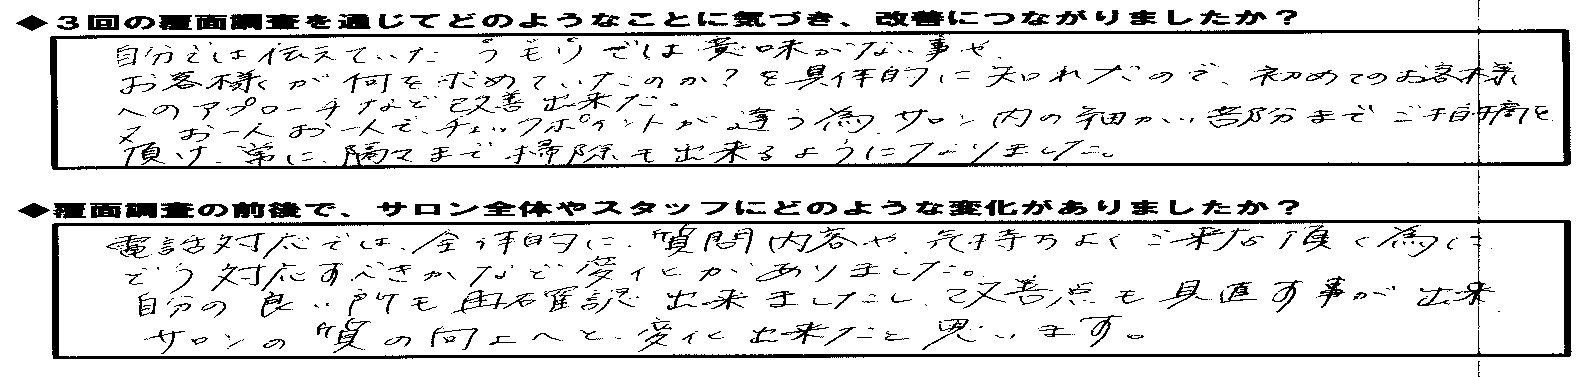 ◆3回の覆面調査を通じてどのようなことに気づき、改善につながりましたか？
自分では伝えていたつもりでは意味がない事や、
お客様が何を求めていたのか？を具体的に知れたので、初めてのお客様
へのアプローチなど改善出来た。
又、お一人お一人で、チェックポイントが違う為、サロン内の細かい部分までご指摘を
頂け、常に、隅々まで掃除も出来るようになりました。
◆覆面調査の前後で、サロン全体やスタッフにどのような変化がありましたか？
電話対応では、全体的に、質問内容や、気持ちよくご来店頂く為に
どう対応すべきかなど変化がありました。
自分の良い所も再確認出来ましたし、改善点も見直す事が出来
サロンの質の向上へと、変化出来たと思います。